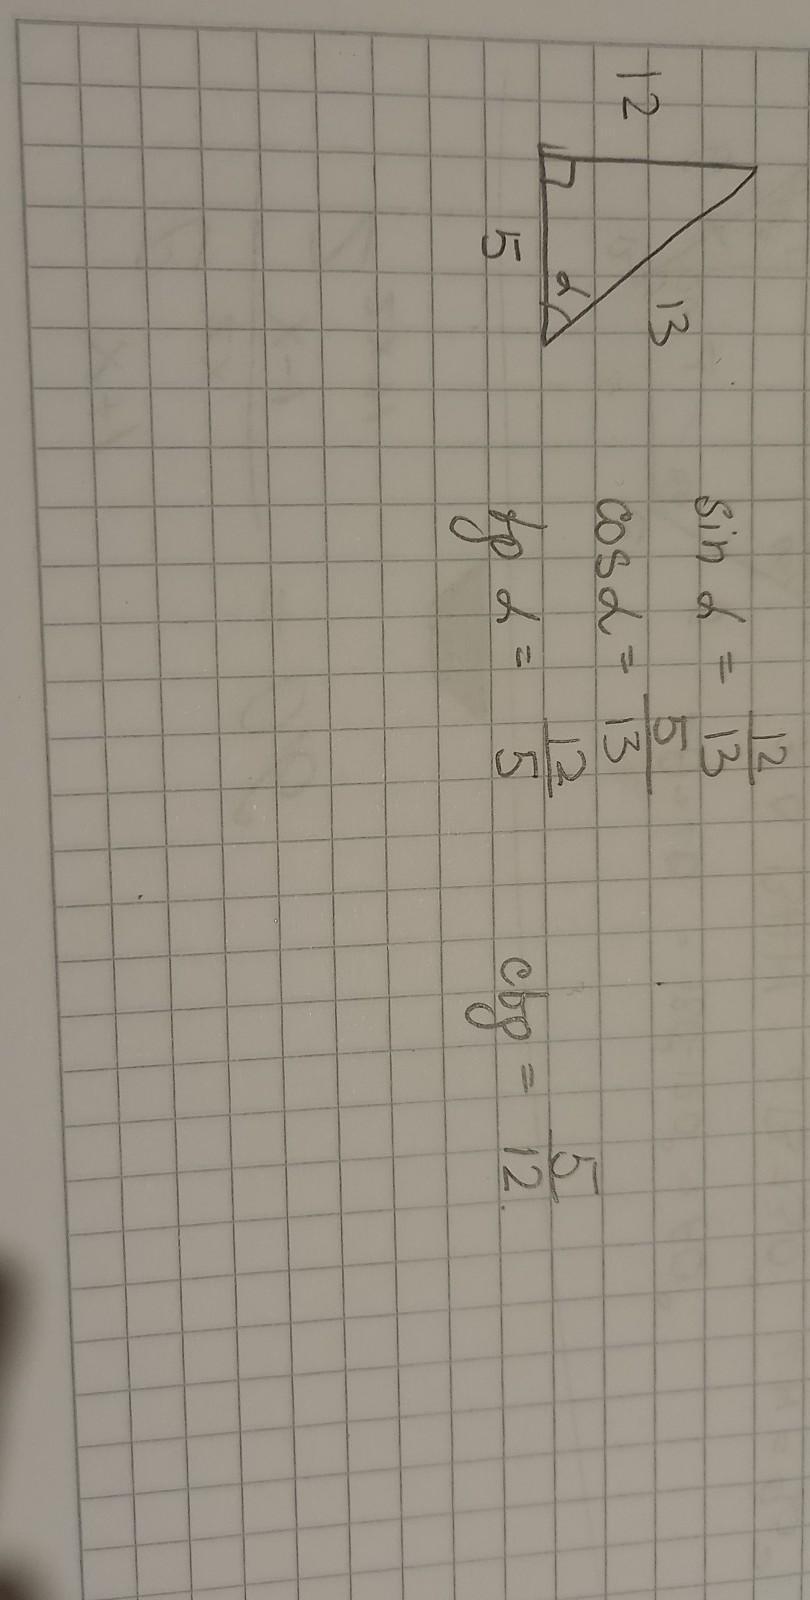 12
13
α
5
sin α = 12/13
cos α = 5/13
tg α = 12/5
ctg = 5/12